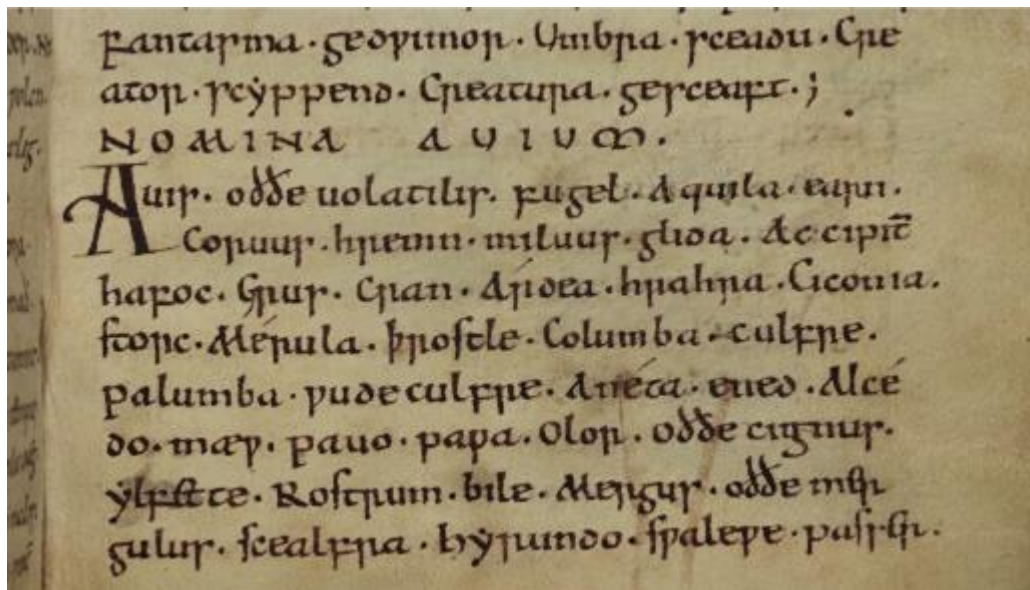 fantasma · gedƿimor · Umbra · sceadu · Cre
ator · scẏppend · Creatura · gesceaft ·;
NOMINA AUIUM.
Auis · oððe uolatilis · fugel · Aquila · earn ·
Coruus · hremn · miluus · glida · Accipit̄
hafoc · Grus · Cran · Ardea · hrahra · Ciconia ·
storc · Mérula · þrostle · Columba · culfre ·
palumba · ƿudeculfre · Anéta · ened · Alcé
do · mæƿ · pauo · paƿa · Olor · oððe cignus ·
ẏlfette · Rostrum · bile · Mergus · oððe mer
gulus · scealfra · hẏrundo · sƿaleƿe · passer ·